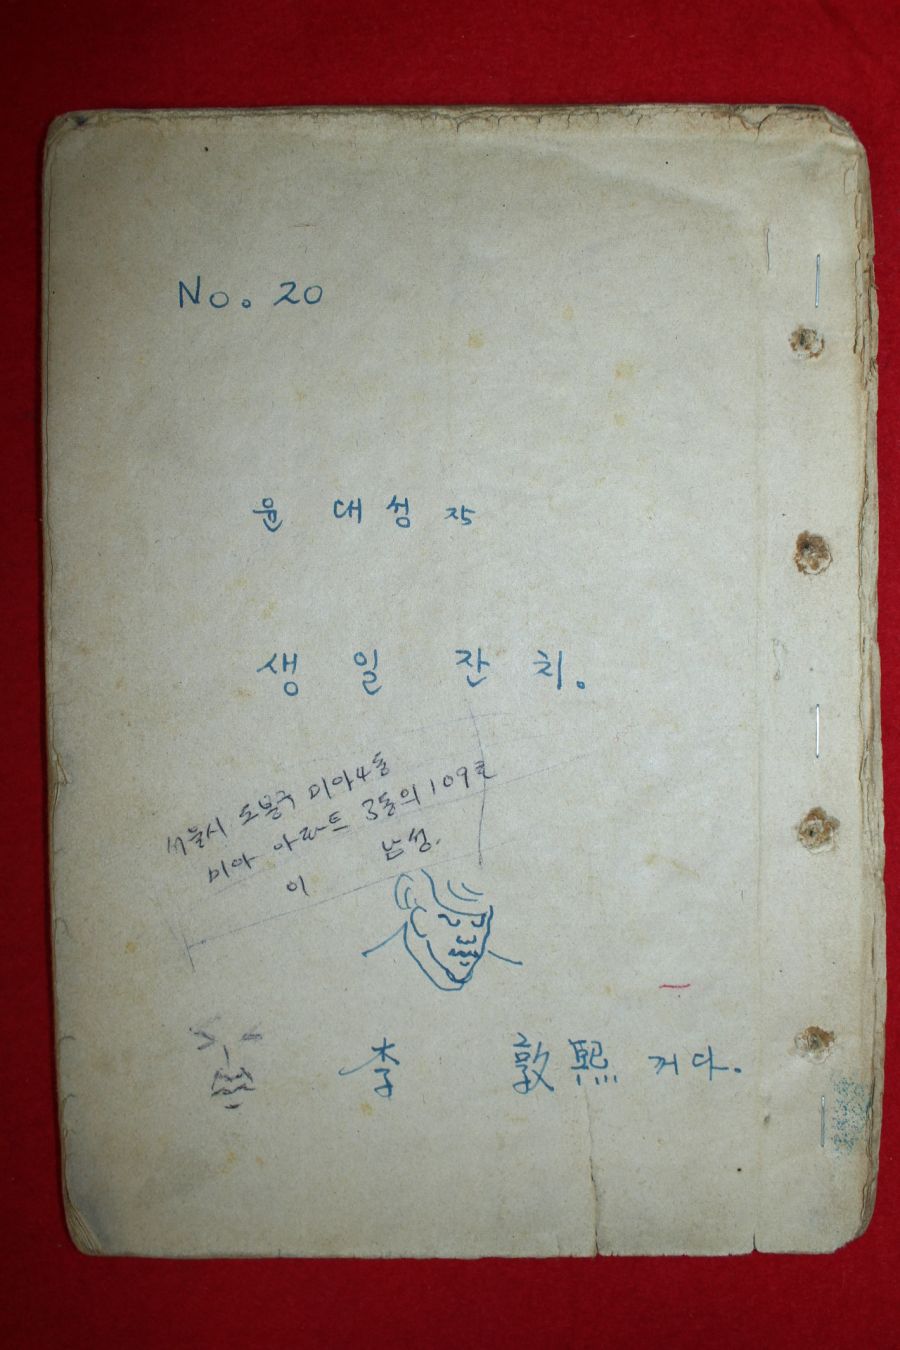 No. 20
윤 대성 작
생 일 잔 치.
서울시 도봉구 미아4동
미아 아파트 3동의 109호
이 남성.
李 敦熙 거다.